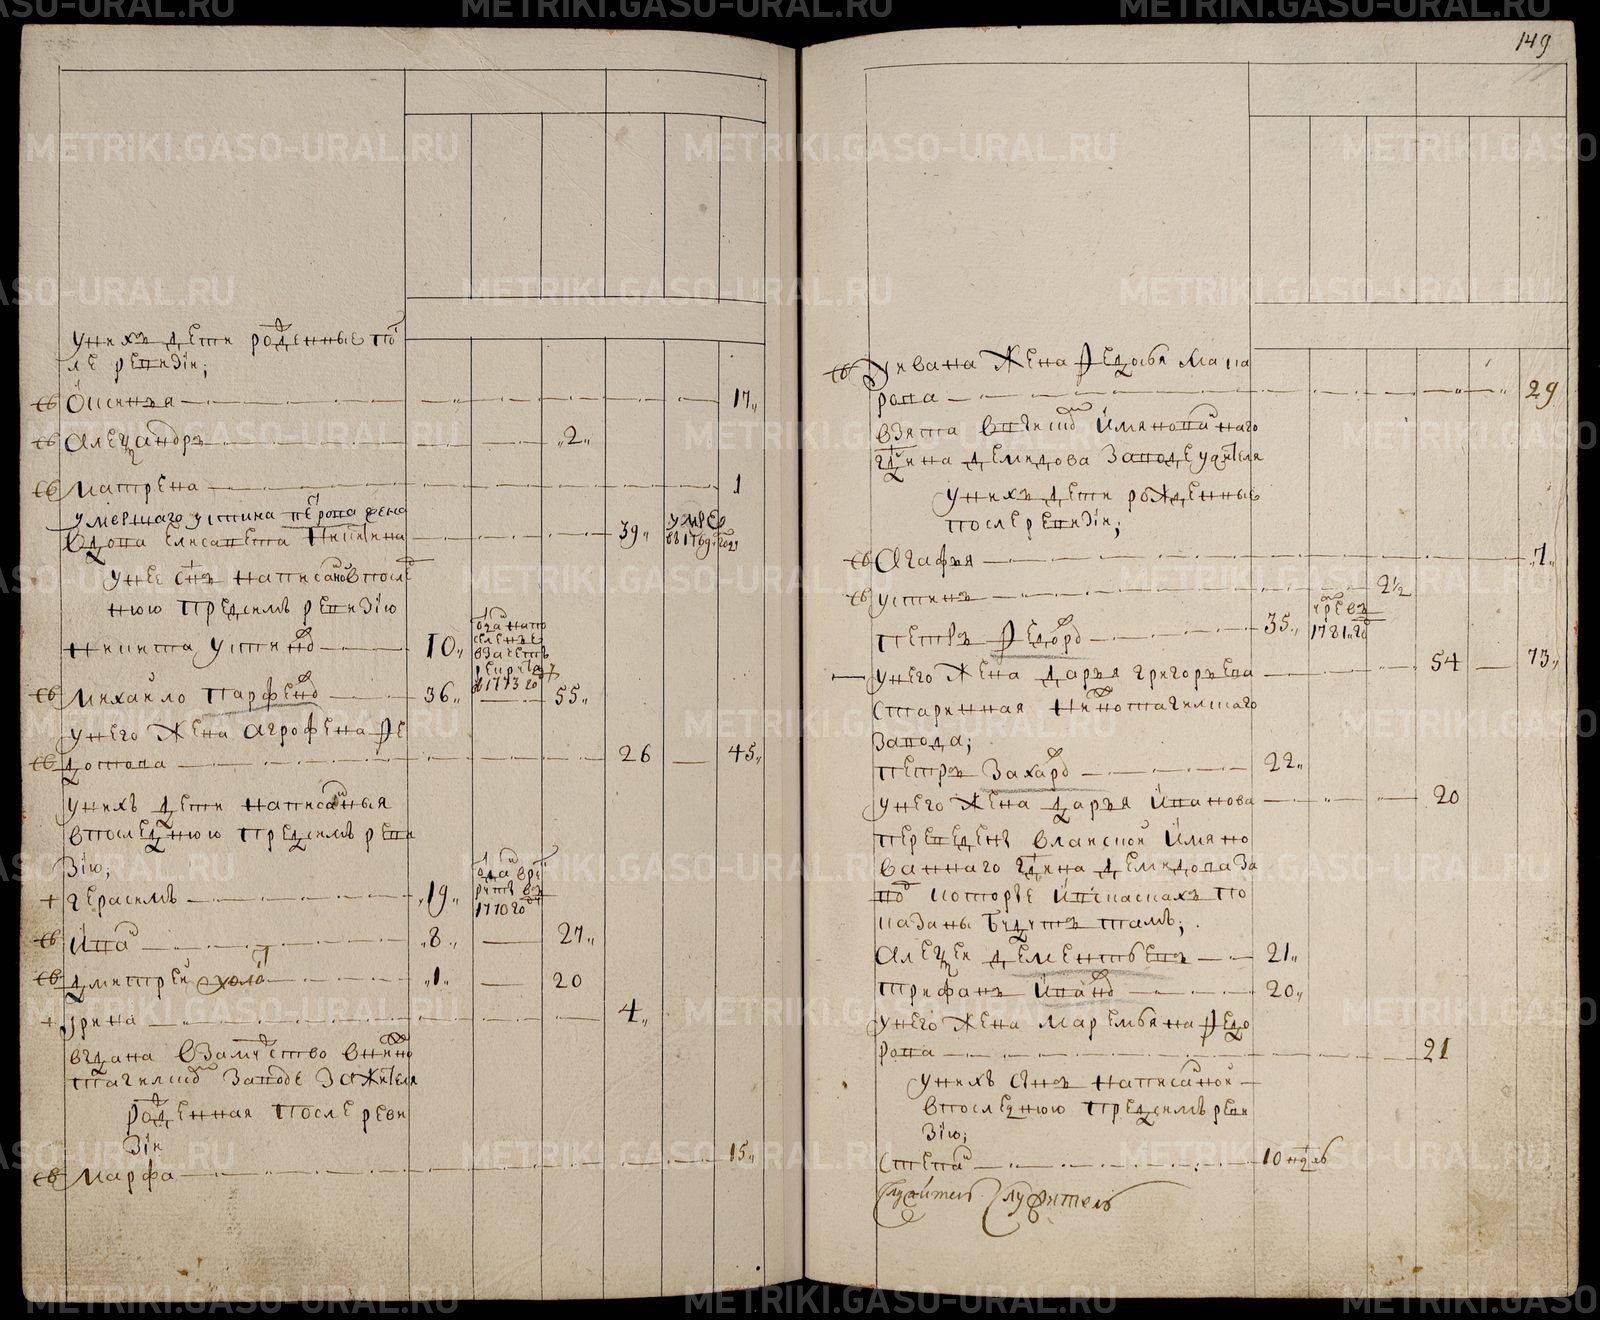 149
у нихъ дети рожденные по
ле ревизіи;
Ѯсенья 17
Александръ 2
Матрена 1
умершаго устина петрова жена
вдова Елисавета Никитина 39 умре
в 1769 году
у нее сынъ написанной в послед
нюю предсимъ ревизію
Никита устинов 10
взачетъ
рекрута
в 1773 го
Михайло Парфенов 36 55
у него жена Агрофена Фе
дотова 26 45
у нихъ дети написанныя
в последнюю предсимъ реви
зію;
Герасимъ 19 отдан в рек
руты въ
1770 го
Иван 8 27
Дмитрей холо 1 20
Ирина 4
выдана взамужство в нижно
тагилском заводе за жителя
рожденная после реви
зіи
Марфа 15
у Ивана жена Федосья Мака
рова 29
взята в Невьянском имянованнаго
гдина Демидова заводе у жителя
у нихъ дети рожденные
после ревизіи;
Агафья 7
устинъ 2½
Петръ Федоров 35 умре въ
1781 го
у него жена Дарья Григорьева 54 73
старинная Нижнотагилскаго
завода;
Петръ Захаров 22
у него жена Дарья Иванова 20
переведенъ в Лайской имяно
ваннаго гдина Демидова за
вод которые и в скаскахъ по
казаны будутъ тамъ;
Алексей Дементьевъ 21
Трифанъ Иванов 20
у него жена Маремьяна Федо
рова 21
у нихъ сынъ написанной
в последнюю предсимъ реви
зію;
Степан 10 недель
Служитель Служитель